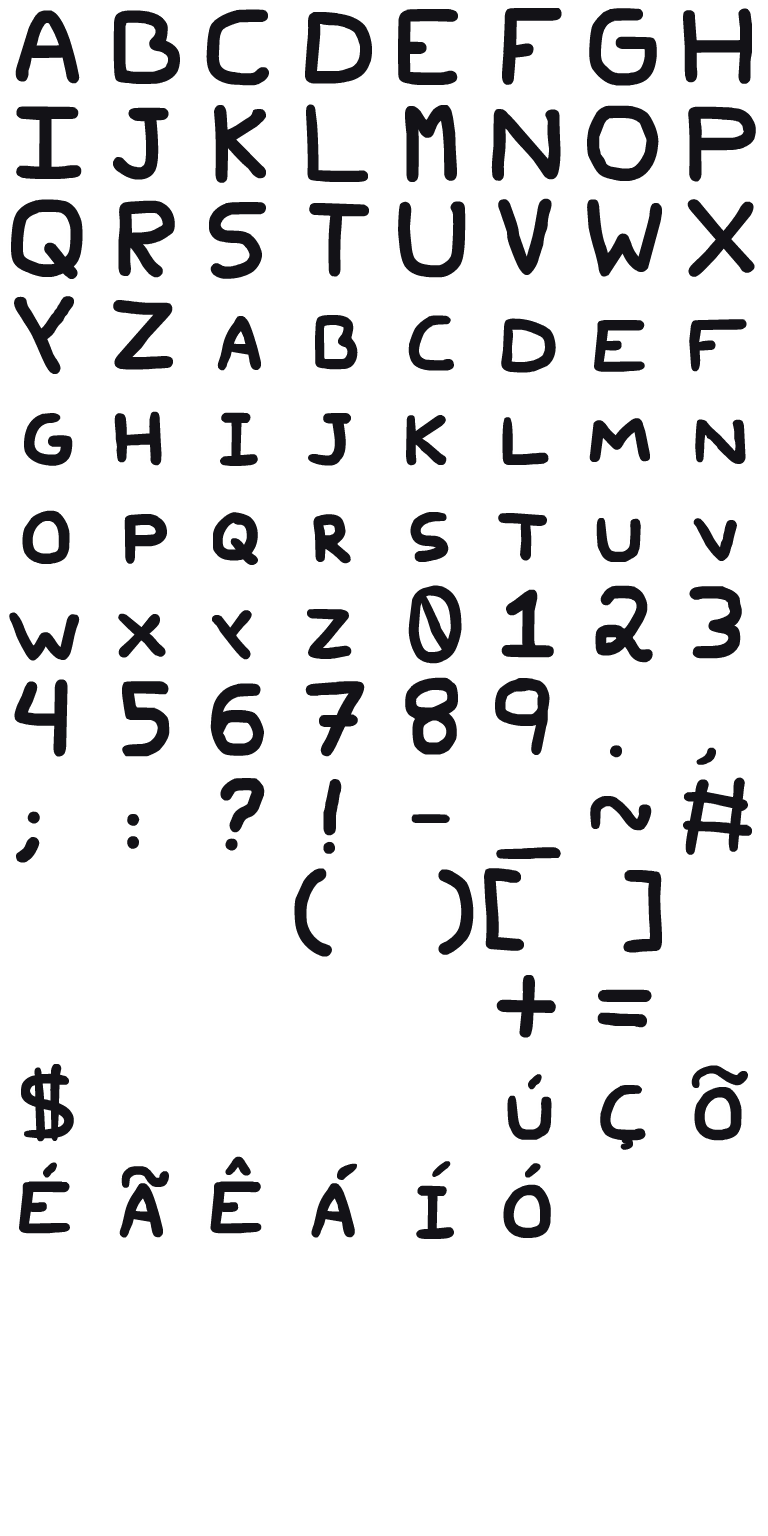 A B C D E F G H
I J K L M N O P
Q R S T U V W X
Y Z A B C D E F
G H I J K L M N
O P Q R S T U V
W X Y Z 0 1 2 3
4 5 6 7 8 9 . ,
; : ? ! - _ ~ #
( ) [ ]
+ =
$ Ú Ç Õ
É Ã Ê Á Í Ó